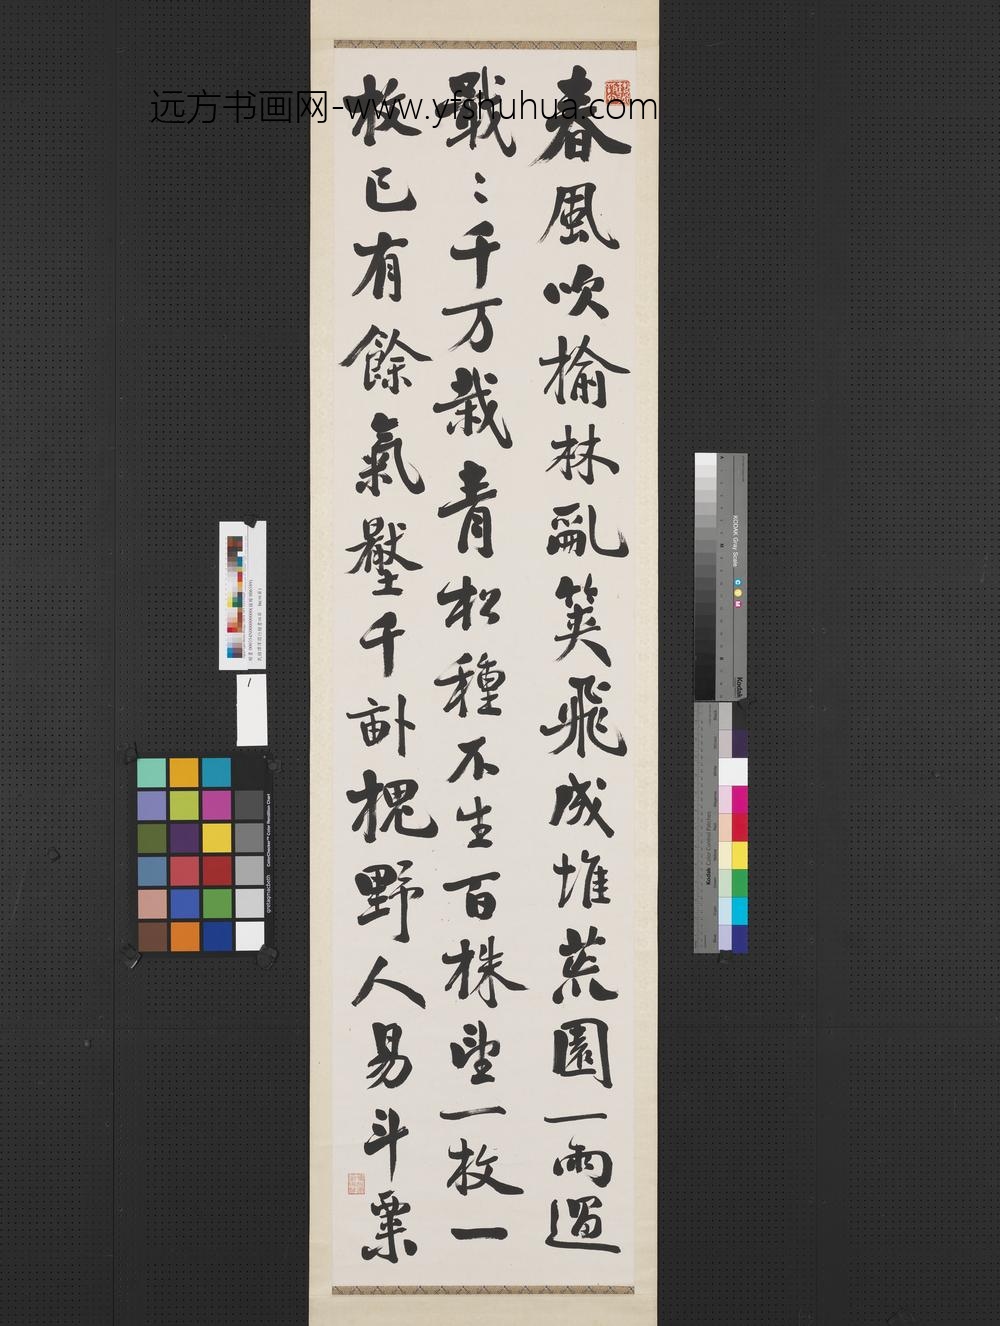 远方书画网-www.yfshuhua.com
春風吹榆林亂筴飛成堆荒園一雨過
戢〻千万栽青松種不生百株望一枚一
枚已有餘氣壓千畝槐野人易斗粟
KODAK Gray Scale
C Y M
Kodak
Kodak Color Control Patches
ColorChecker Color Rendition Chart
gretagmacbeth